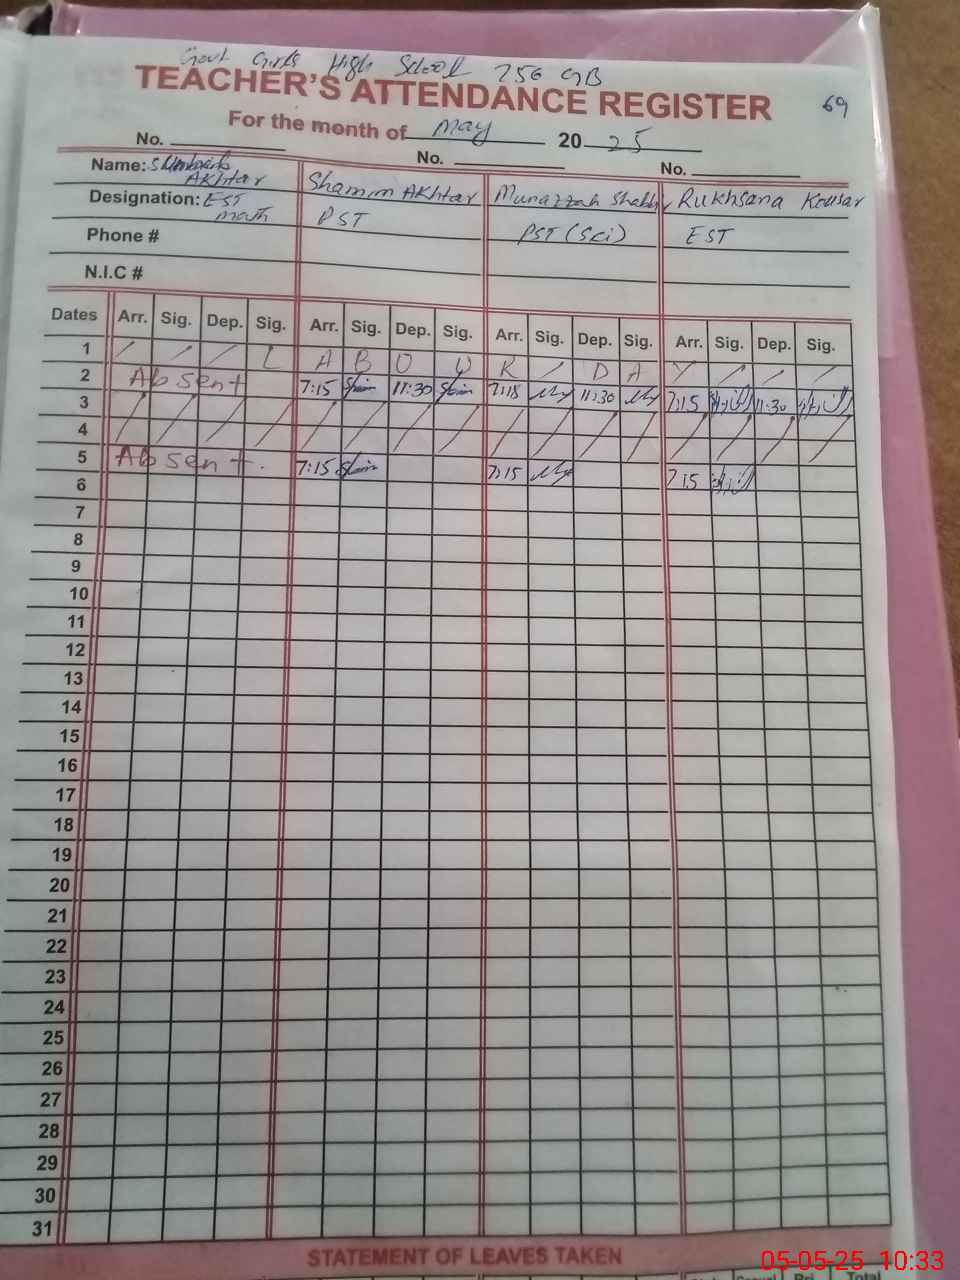 Govt Girls High School 256 GB
TEACHER'S ATTENDANCE REGISTER
69
For the month of May 2025
No. No. No.
Name: Akhtar Shamim Akhtar Munazzah Shabbir Rukhsana Kousar
Designation: EST PST PST (Sci) EST
math
Phone #
N.I.C #
Dates Arr. Sig. Dep. Sig. Arr. Sig. Dep. Sig. Arr. Sig. Dep. Sig. Arr. Sig. Dep. Sig.
1 / / / L A B O U R / D A Y / / /
2 Absent 7:15 11:30 7:15 11:30 7:15 11:30
3
4
5 Absent. 7:15 7:15 7:15
6
7
8
9
10
11
12
13
14
15
16
17
18
19
20
21
22
23
24
25
26
27
28
29
30
31
STATEMENT OF LEAVES TAKEN
Total
05-05-25 10:33